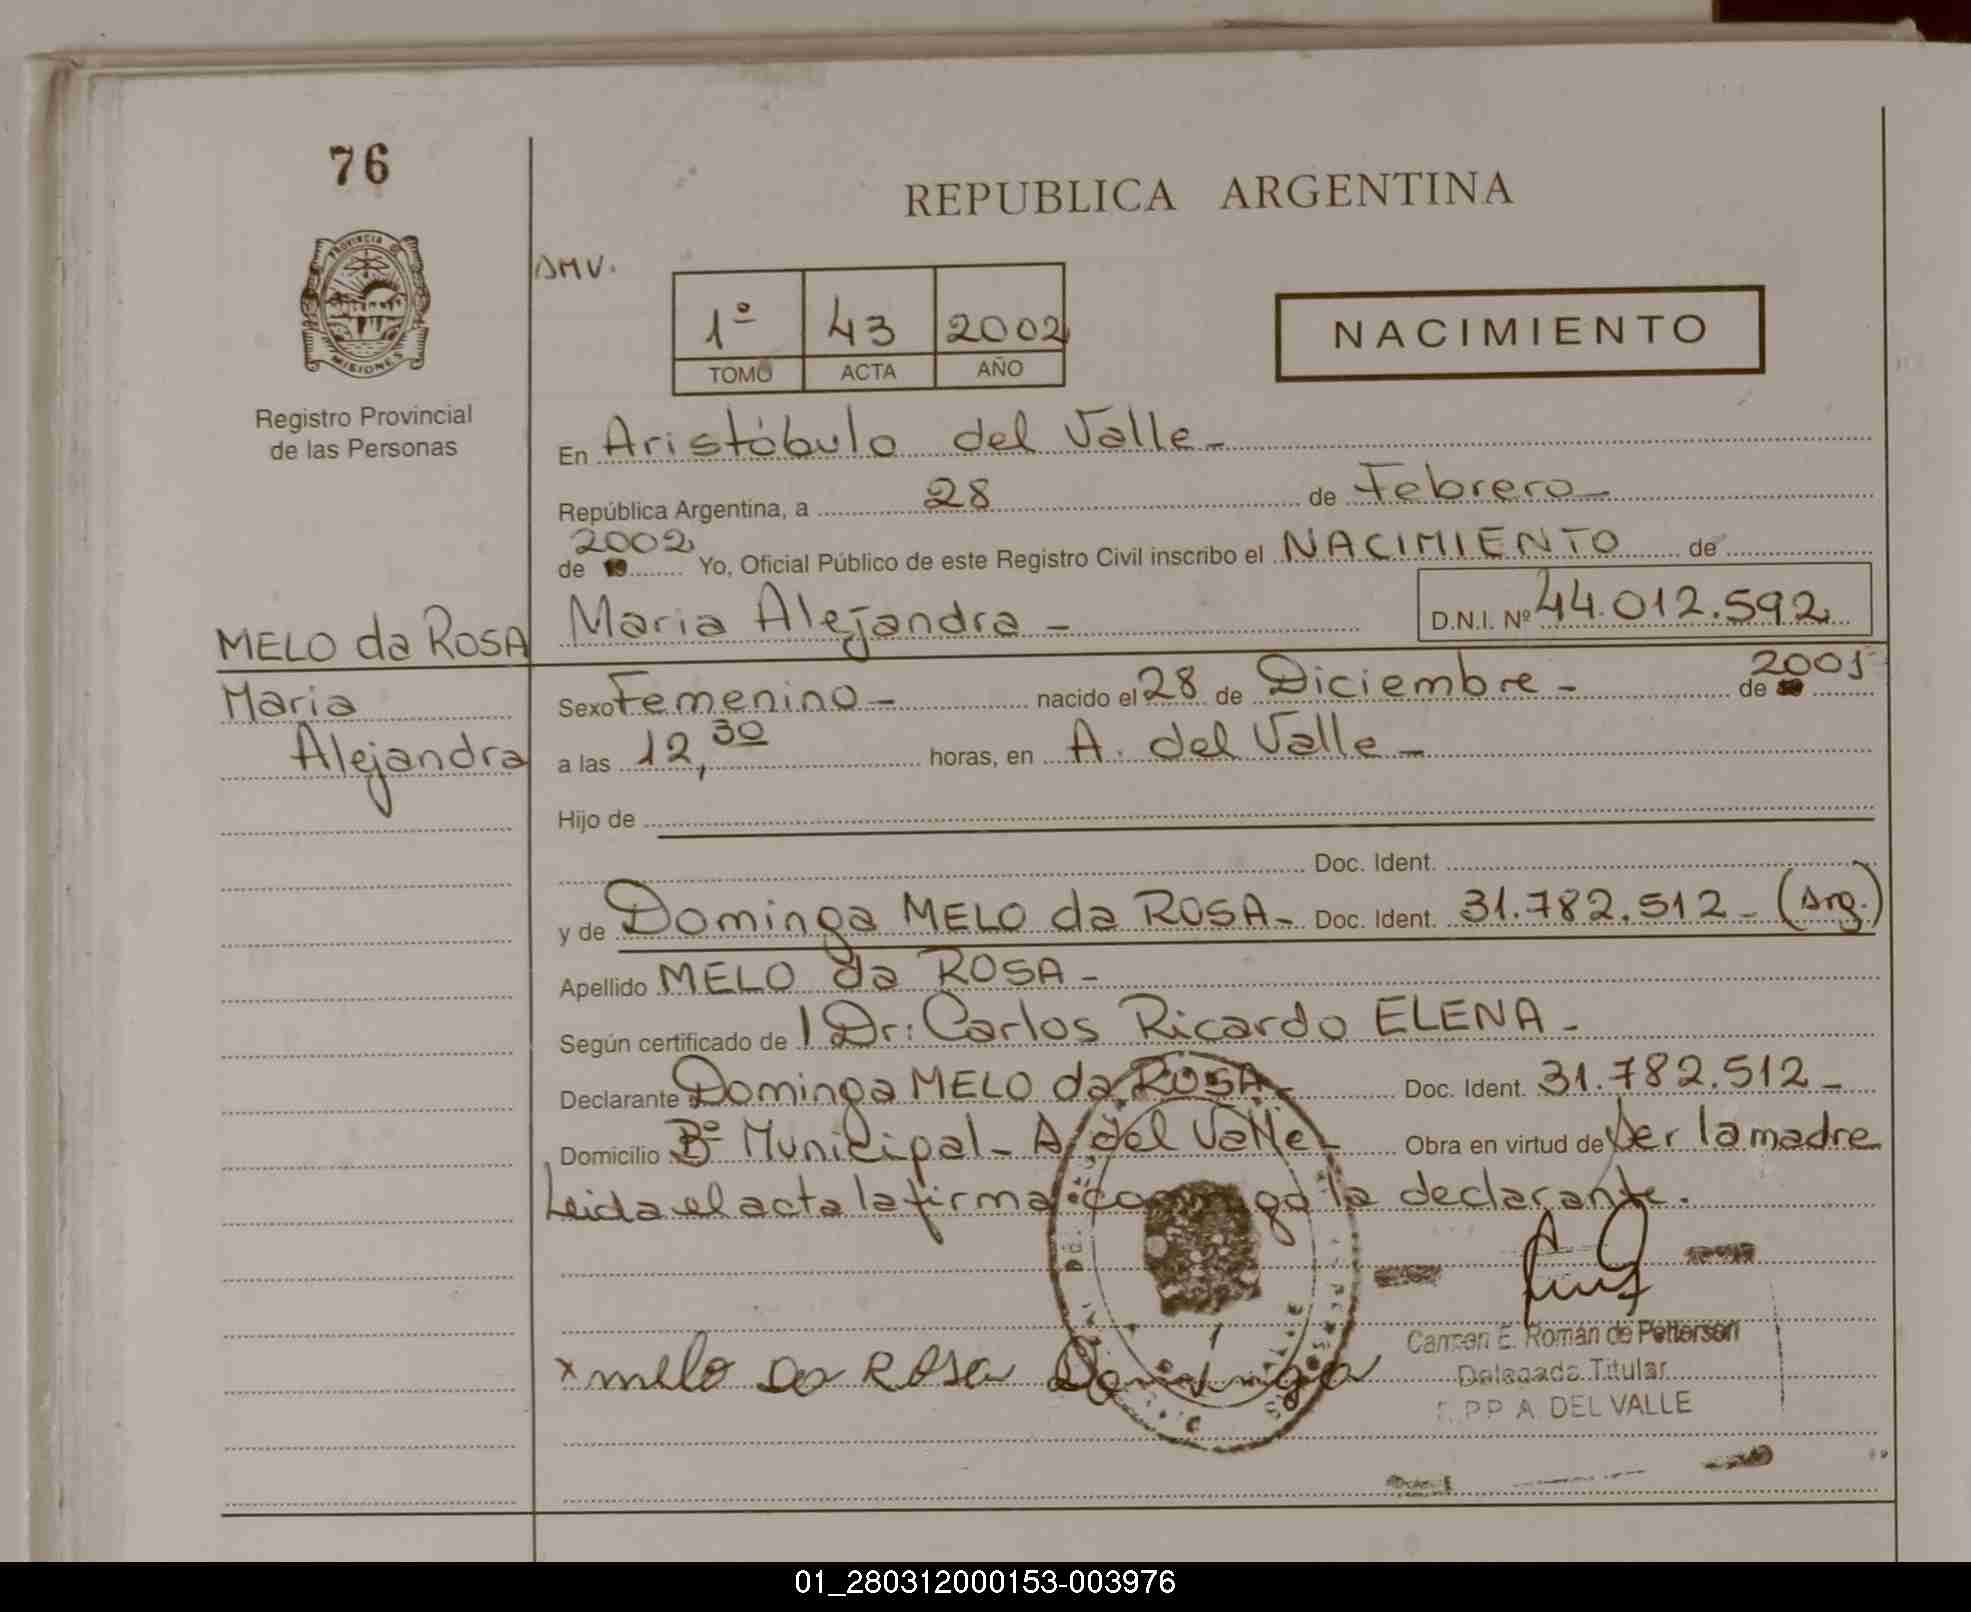 76
REPUBLICA ARGENTINA
PROVINCIA DE
MISIONES
Registro Provincial
de las Personas
AMV.
1º 43 2002
TOMO ACTA AÑO
NACIMIENTO
En Aristóbulo del Valle-
República Argentina, a 28 de Febrero-
2002
de 19 Yo, Oficial Público de este Registro Civil inscribo el NACIMIENTO de
MELO da ROSA
Maria Alejandra - D.N.I. Nº 44.012.592
Maria
Alejandra
Sexo Femenino - nacido el 28 de Diciembre - de 2001
a las 12,30 horas, en A. del Valle-
Hijo de
Doc. Ident.
y de Dominga MELO da ROSA- Doc. Ident. 31.782.512- (Arg.)
Apellido MELO da ROSA-
Según certificado de Dr: Carlos Ricardo ELENA-
Declarante Dominga MELO da ROSA- Doc. Ident. 31.782.512-
Domicilio Bº Municipal- A. del Valle- Obra en virtud de ser la madre
Leida el acta la firma conmigo la declarante.
x melo Da ROSa Dominga
Carmen E. Román de Petterson
Delegada Titular
R.P.P. A. DEL VALLE
01_280312000153-003976